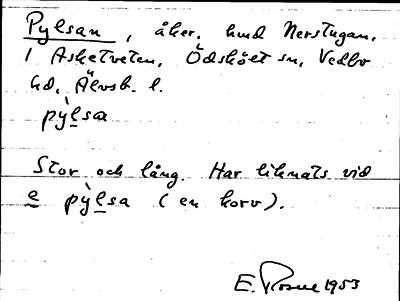 Pylsan, åker, hmd Nerstugan,
1 Asketveten, Ödskölt sn, Vedbo
hd, Älvsb. l.
pỳlsa
Stor och lång. Har liknats vid
e pỳlsa (en korv).
E. 1953